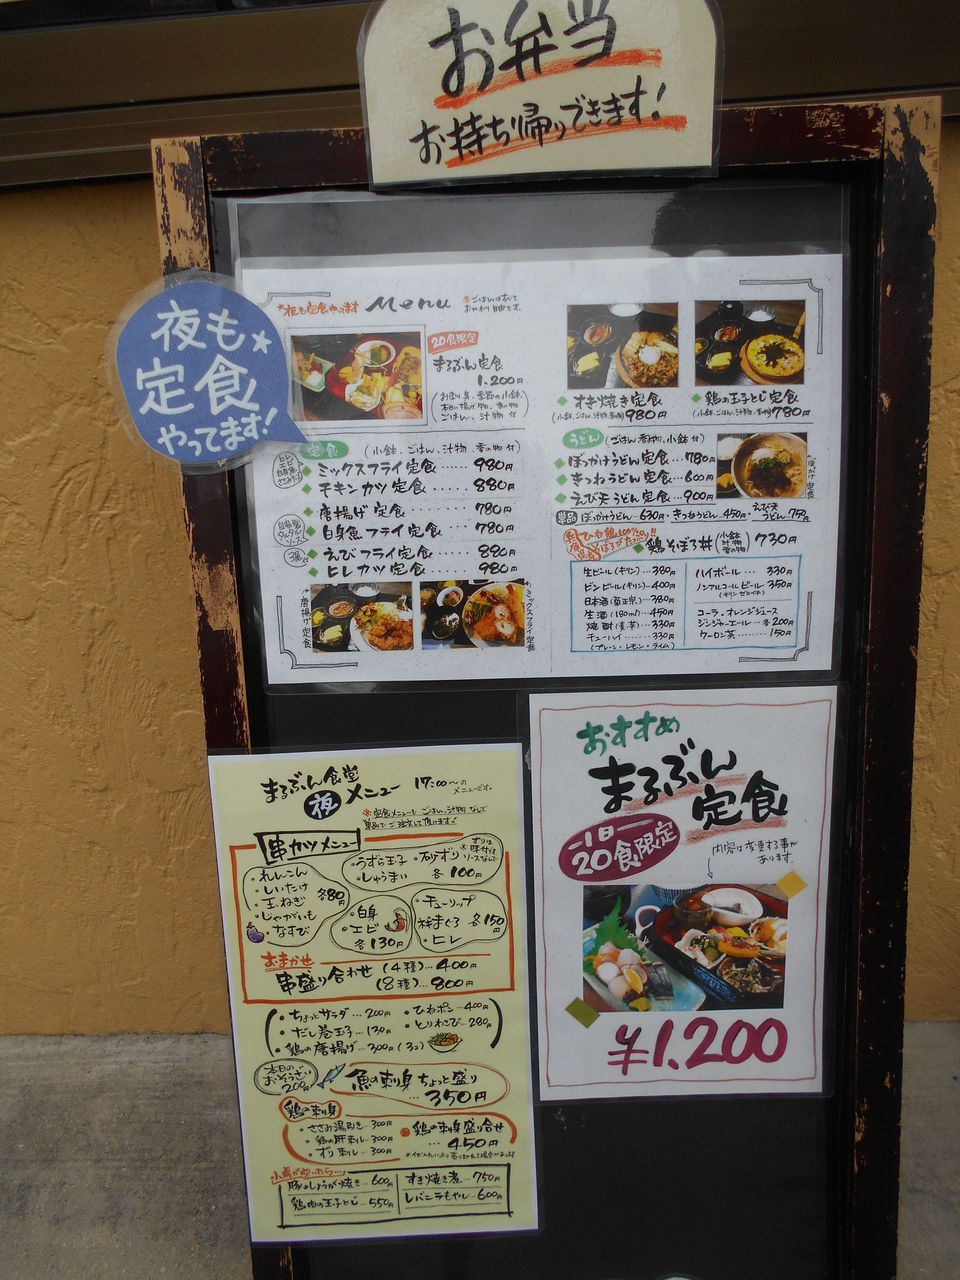 お弁当
お持ち帰りできます!
夜も
定食
やってます!
*夜も定食やってます
Menu
※ごはんはすべて
おかわり自由です。
20食限定
まるぶん定食
1,200円
(お造り、季節の小鉢、
本日の揚げ物、香の物
ごはん、汁物 付)
すき焼き定食
(小鉢、ごはん、汁物、香の物) 980円
鶏の玉子とじ定食
(小鉢、ごはん、汁物、香の物) 780円
定食 (小鉢、ごはん、汁物、香の物 付)
ミックスフライ定食……980円
チキンカツ定食……880円
唐揚げ定食……780円
白身魚フライ定食……780円
えびフライ定食……880円
ヒレカツ定食……980円
自家製
タルタル
ソース
3尾付
唐揚げ定食
ミックスフライ定食
うどん (ごはん、香の物、小鉢 付)
ぼっかけうどん定食…780円
きつねうどん定食…600円
えび天うどん定食…900円
ぼっかけ定食
単品 ぼっかけうどん…630円・きつねうどん 450円・えび天うどん 750円
鶏そぼろ丼 (小鉢 汁物 香の物) 730円
生ビール(キリン)…380円
ビンビール(キリン)…400円
日本酒(菊正宗)…380円
生酒(180ml)…450円
焼酎(麦・芋)…330円
チューハイ……330円
(プレーン・レモン・ライム)
ハイボール……330円
ノンアルコールビール…350円
(キリン ゼロイチ)
コーラ・オレンジジュース
ジンジャーエール…各200円
ウーロン茶……150円
おすすめ
まるぶん
定食
一日
20食限定
内容は変更する事が
あります。
¥1.200
まるぶん食堂
夜メニュー 17:00〜の
メニューです。
※定食メニューも ごはん、汁物 なしで
単品でご注文して頂けます!
串カツメニュー
・れんこん
・しいたけ
・玉ねぎ
・じゃがいも
・なすび
各80円
・うずら玉子 ・砂ずり
・しゅうまい 各100円
※ずりは
味付け
ソースなしで
・白身
・エビ
各130円
・チューリップ
・味まぐろ
・ヒレ
各150円
おまかせ
串盛り合わせ (4種)…400円
(8種)…800円
・ちょっとサラダ…200円
・だし巻玉子…130円
・鶏の唐揚げ…300円(3コ)
・ひねポン…400円
・とりわさび…280円
本日の
おそうざい
200円
魚の刺身 ちょっと盛り
…350円
鶏の刺身
・ささみ湯引き…300円
・鶏の肝刺し…300円
・ずり刺し…300円
鶏の刺身盛り合せ
…450円
小腹が空いたら…
豚のしょうが焼き…600円
鶏肉の玉子とじ…550円
すき焼き煮…750円
レバニラもやし…600円